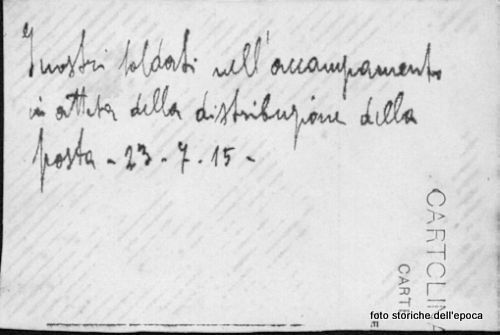 I nostri soldati nell'accampamento
in attesa della distribuzione della
posta - 23 - 7 - 15 -
CARTOLINA
CARTE
foto storiche dell'epoca